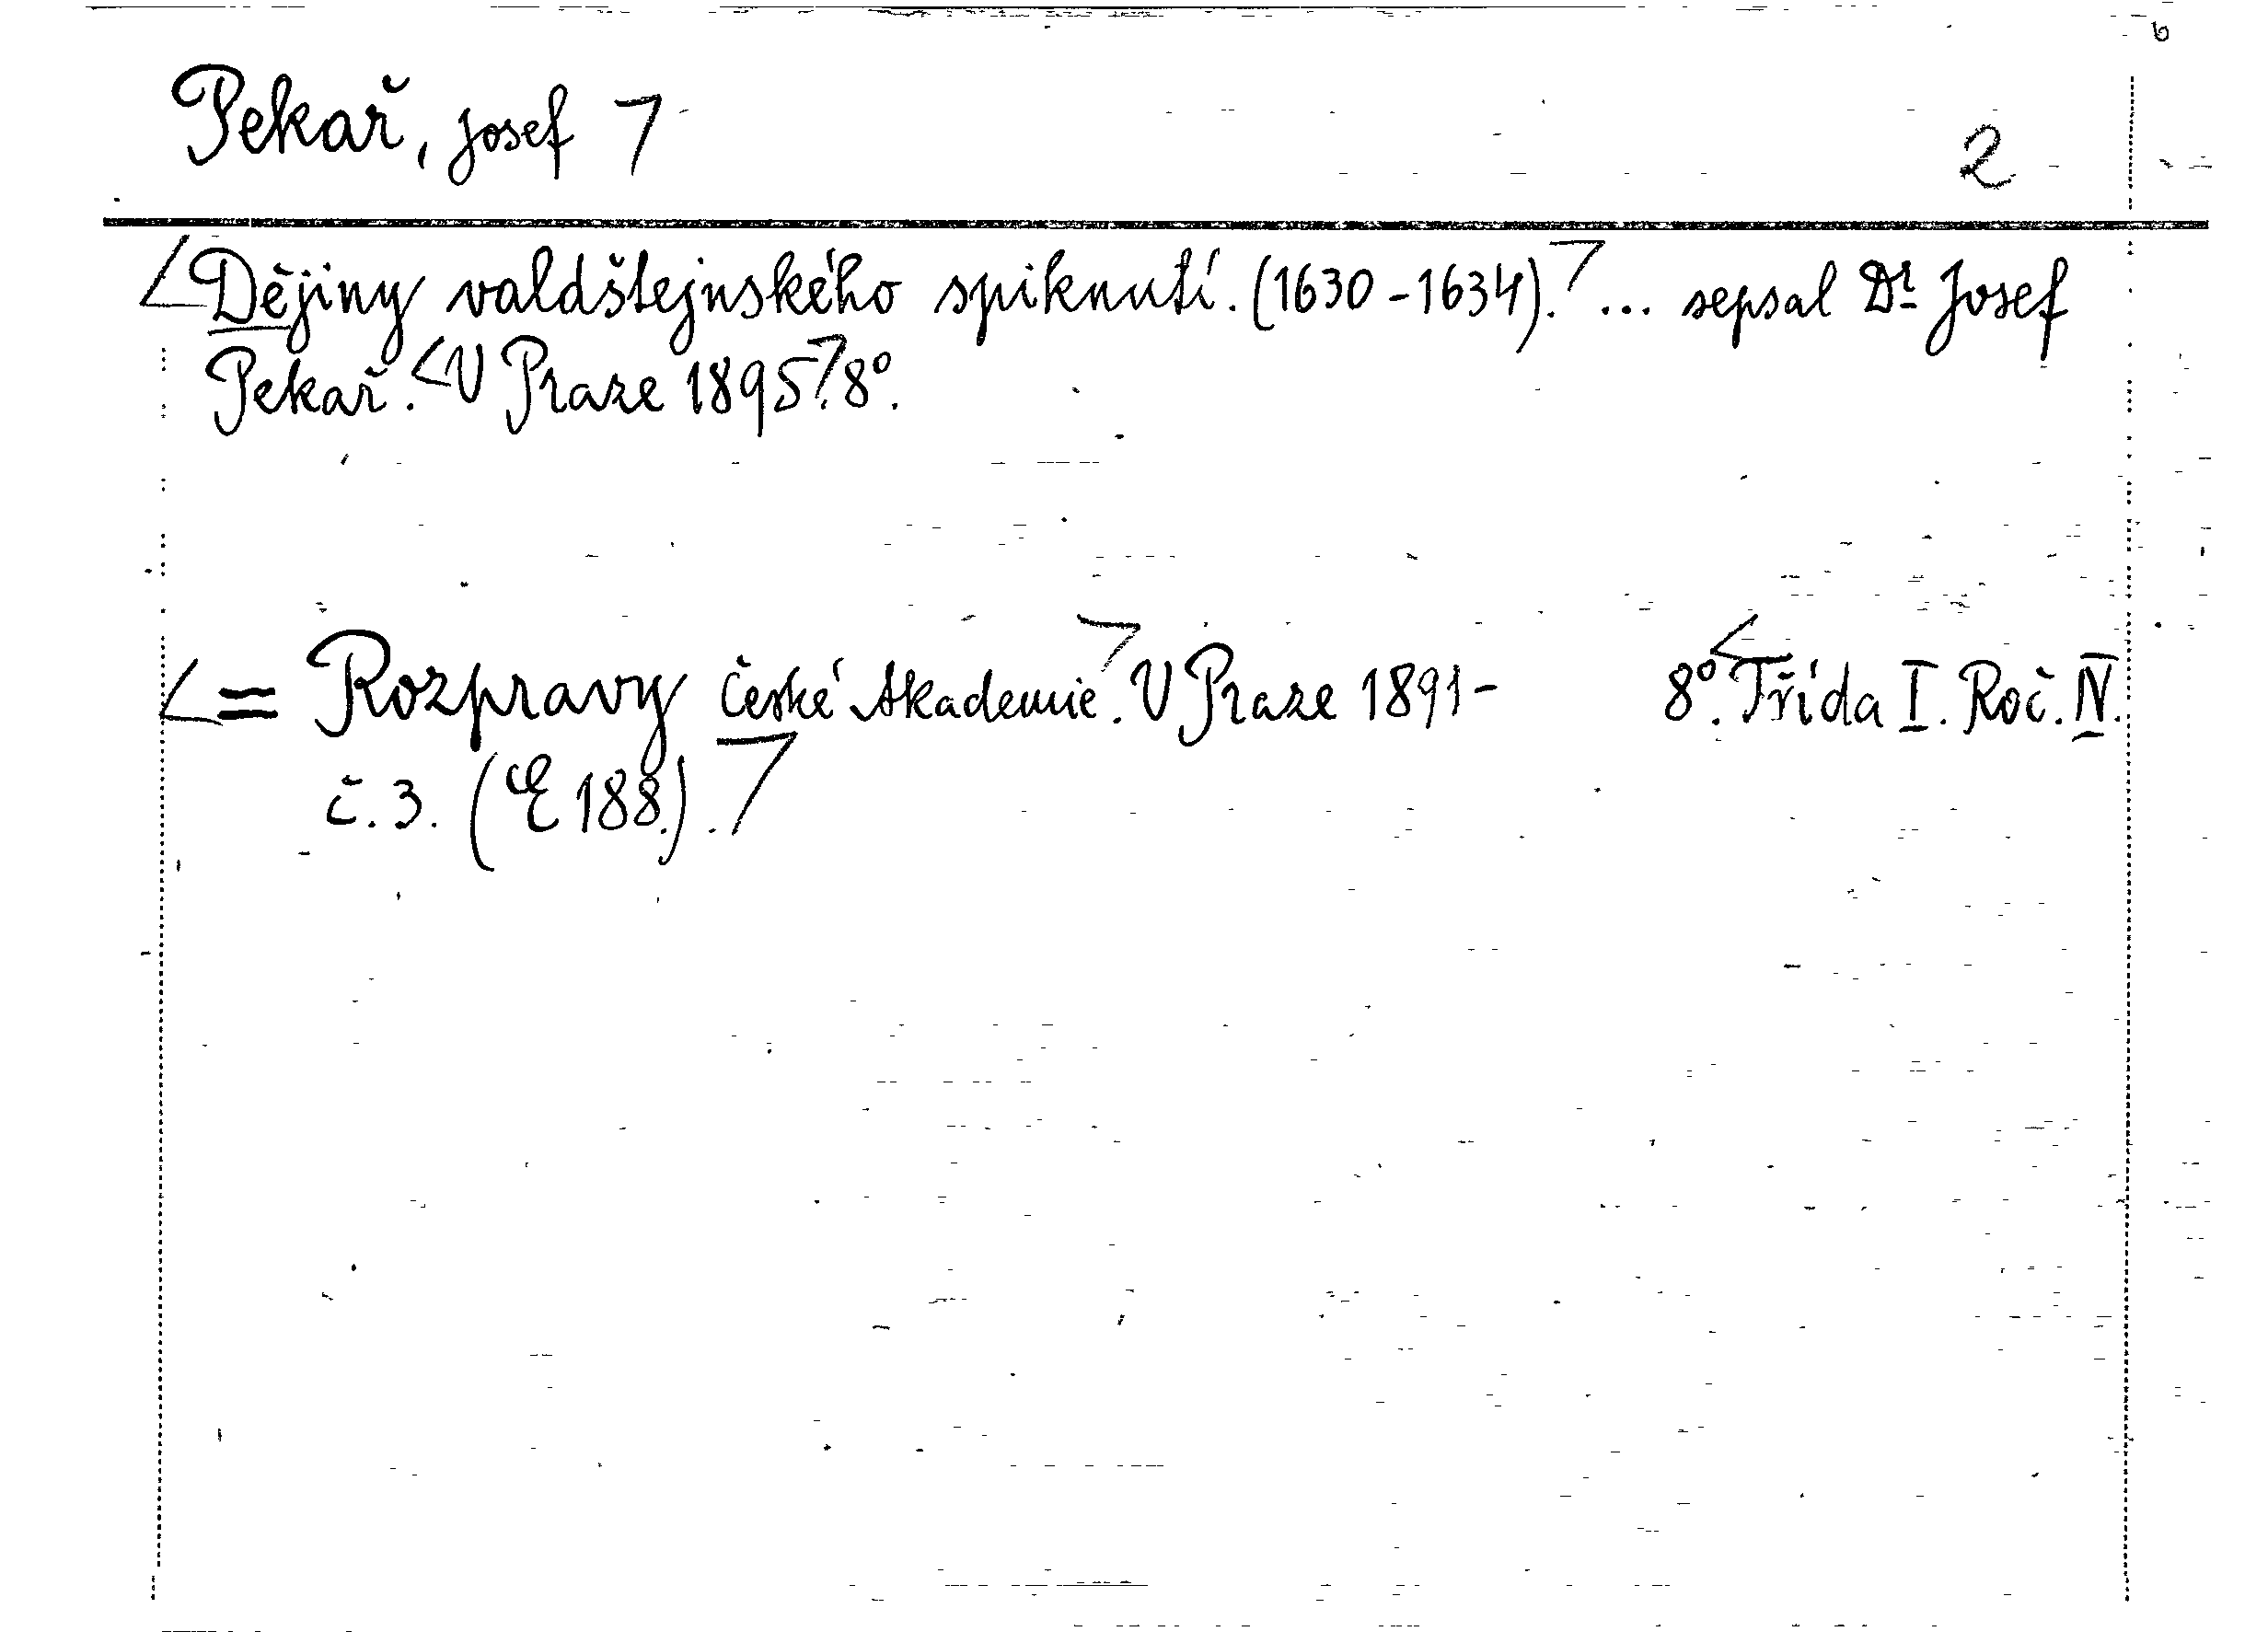 Pekař, Josef 7 2
Dějiny valdštejnského spiknutí. (1630-1634). ... sepsal Dr Josef
Pekař. V Praze 1895. 8°.
= Rozpravy České Akademie. V Praze 1891- 8°. Třída I. Roč. IV.
č. 3. (E 188.).